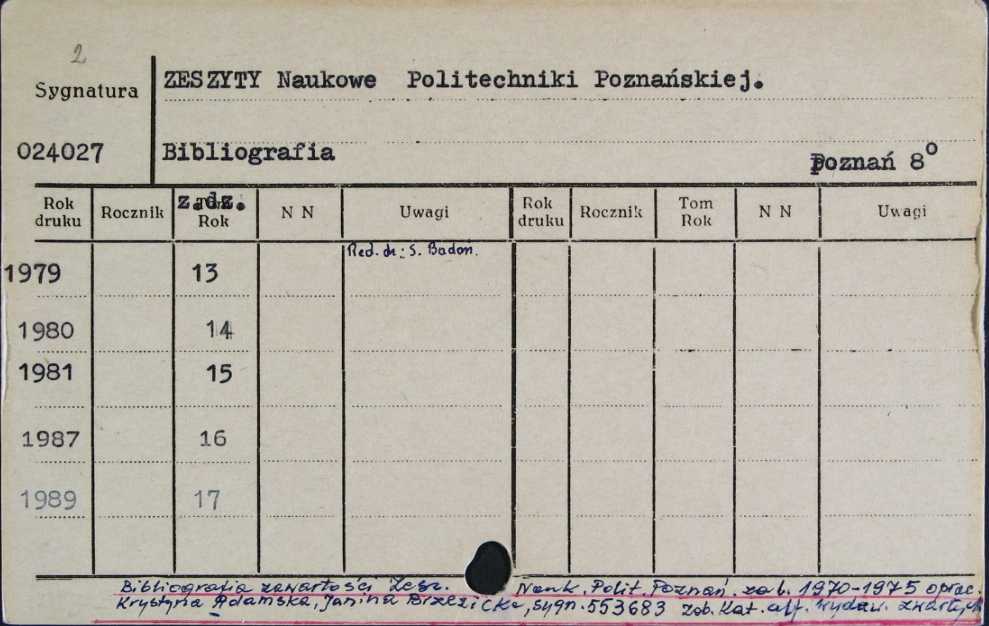 2
Sygnatura
ZESZYTY Naukowe Politechniki Poznańskiej.
024027
Bibliografia
Poznań 8⁰
z.dz.
Rok druku Rocznik Tom Rok N N Uwagi Rok druku Rocznik Tom Rok N N Uwagi
Red. dr: S. Badoń.
1979 13
1980 14
1981 15
1987 16
1989 17
Bibliografia zawartości Zesz. Nauk. Polit. Poznań. za l. 1970-1975 oprac.
Krystyna Adamska, Janina Brzezicka, sygn. 553683 zob. Kat. alf. wydaw. zwartych